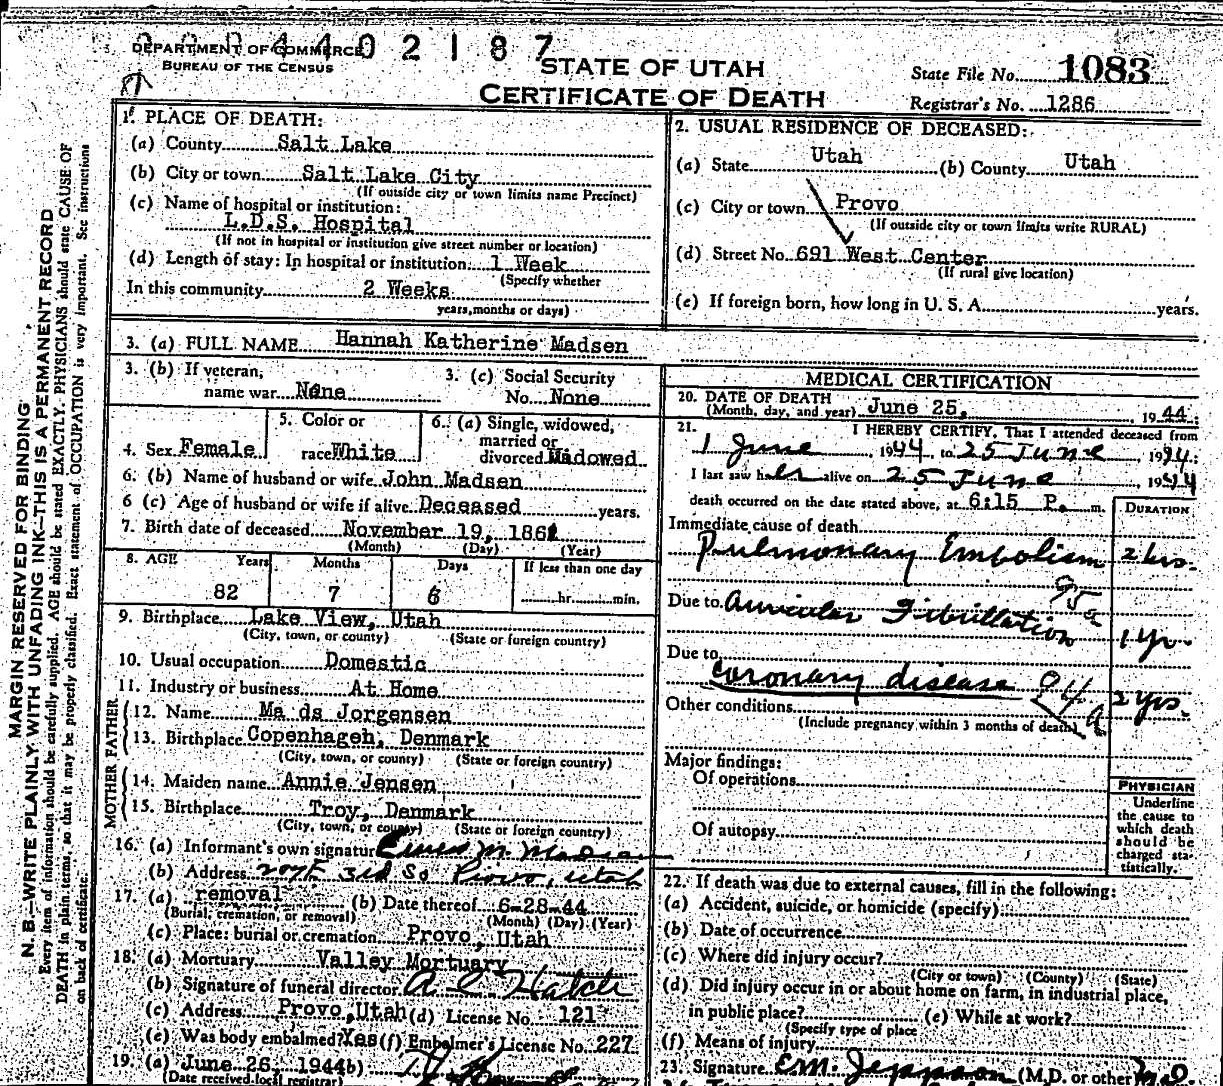 DEPARTMENT OF COMMERCE
BUREAU OF THE CENSUS
4402187
STATE OF UTAH
CERTIFICATE OF DEATH
State File No. 1083
Registrar's No. 1286
MARGIN RESERVED FOR BINDING
N. B.—WRITE PLAINLY WITH UNFADING INK—THIS IS A PERMANENT RECORD
Every item of information should be carefully supplied. AGE should be stated EXACTLY. PHYSICIANS should state CAUSE OF
DEATH in plain terms, so that it may be properly classified. Exact statement of OCCUPATION is very important. See instructions
on back of certificate.
1. PLACE OF DEATH:
(a) County Salt Lake
(b) City or town Salt Lake City
(If outside city or town limits name Precinct)
(c) Name of hospital or institution:
L.D.S. Hospital
(If not in hospital or institution give street number or location)
(d) Length of stay: In hospital or institution: 1 Week
(Specify whether
In this community 2 Weeks
years, months or days)
2. USUAL RESIDENCE OF DECEASED:
(a) State Utah (b) County Utah
(c) City or town Provo
(If outside city or town limits write RURAL)
(d) Street No. 691 West Center
(If rural give location)
(e) If foreign born, how long in U. S. A. years.
3. (a) FULL NAME Hannah Katherine Madsen
3. (b) If veteran, name war None
3. (c) Social Security No. None
4. Sex Female
5. Color or race White
6. (a) Single, widowed, married or divorced Widowed
6. (b) Name of husband or wife John Madsen
6 (c) Age of husband or wife if alive Deceased years.
7. Birth date of deceased November 19, 1861
(Month) (Day) (Year)
8. AGE Years Months Days If less than one day
82 7 6 hr. min.
9. Birthplace Lake View, Utah
(City, town, or county) (State or foreign country)
10. Usual occupation Domestic
11. Industry or business At Home
FATHER
12. Name Ma ds Jorgensen
13. Birthplace Copenhagen, Denmark
(City, town, or county) (State or foreign country)
MOTHER
14. Maiden name Annie Jensen
15. Birthplace Troy, Denmark
(City, town, or county) (State or foreign country)
16. (a) Informant's own signature M. Madsen
(b) Address 207 E 3rd So Provo, Utah
17. (a) removal (b) Date thereof 6-28-44
(Burial, cremation, or removal) (Month) (Day) (Year)
(c) Place: burial or cremation Provo, Utah
18. (a) Mortuary Valley Mortuary
(b) Signature of funeral director Hatch
(c) Address Provo, Utah (d) License No. 121
(e) Was body embalmed? Yes (f) Embalmer's License No. 227
19. (a) June 26, 1944 b)
(Date received local registrar)
MEDICAL CERTIFICATION
20. DATE OF DEATH
(Month, day, and year) June 25, 1944:
21. I HEREBY CERTIFY, That I attended deceased from
1 June, 1944, to 25 June, 1944:
I last saw her alive on 25 June 1944
death occurred on the date stated above, at 6:15 P. m. DURATION
Immediate cause of death
Pulmonary Embolism 2 hrs.
95a
Due to Auricular Fibrillation 1 yr.
Due to
coronary disease 94a 2 yrs.
Other conditions
(Include pregnancy within 3 months of death)
Major findings:
Of operations
Of autopsy
PHYSICIAN
Underline
the cause to
which death
should be
charged sta-
tistically.
22. If death was due to external causes, fill in the following:
(a) Accident, suicide, or homicide (specify)
(b) Date of occurrence
(c) Where did injury occur?
(City or town) (County) (State)
(d) Did injury occur in or about home on farm, in industrial place,
in public place? (e) While at work?
(Specify type of place
(f) Means of injury
23. Signature E.M. Jeppson (M.D. or other) M.D.